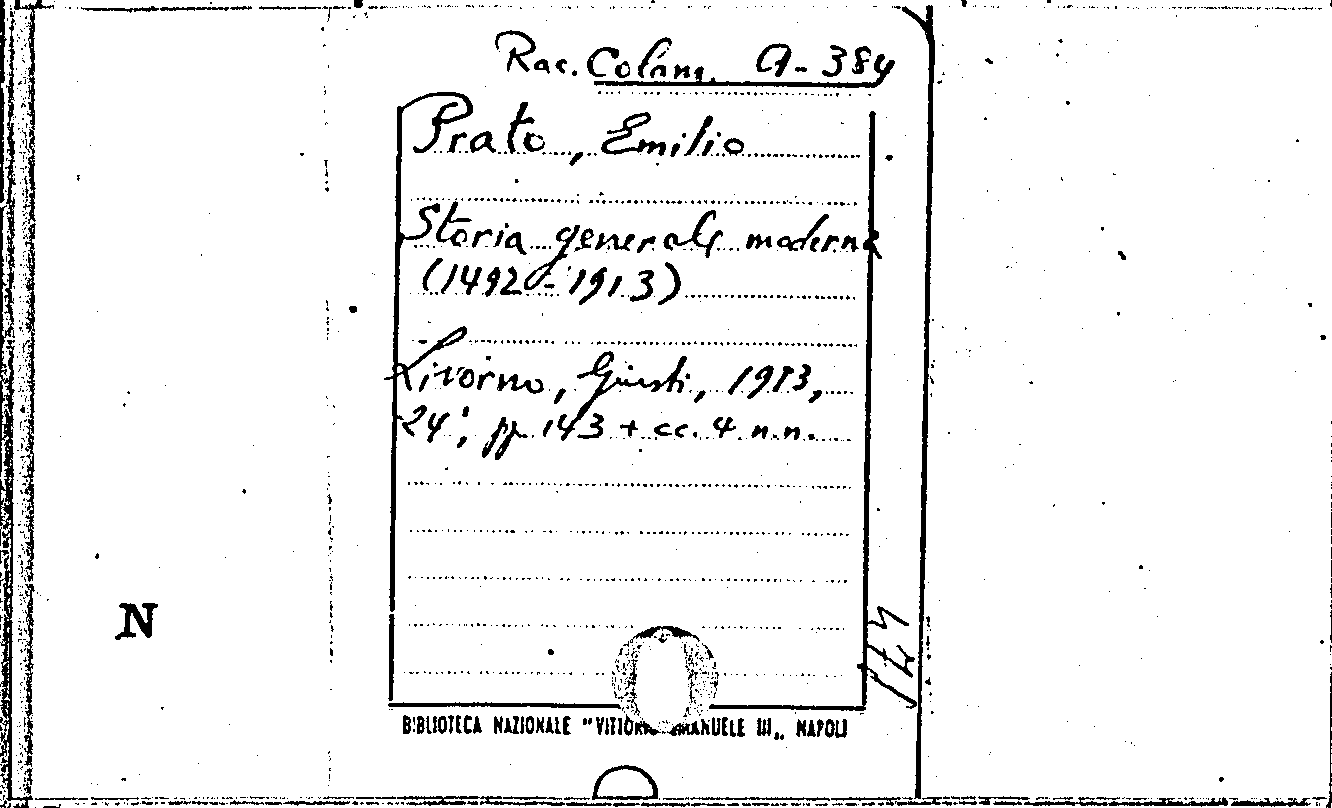 Rac. Colom. A-384
Prato, Emilio
Storia generale moderna
(1492-1913)
Livorno, Giusti, 1913,
24°, pp. 143 + cc. 4 n.n.
N
BIBLIOTECA NAZIONALE "VITTORIO EMANUELE III„ NAPOLI